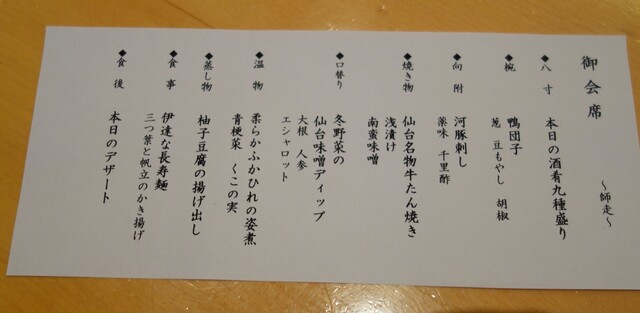 御会席
～師走～
◆八寸 本日の酒肴九種盛り
◆椀 鴨団子
葱 豆もやし 胡椒
◆向附 河豚刺し
薬味 千里酢
◆焼き物 仙台名物牛たん焼き
浅漬け
南蛮味噌
◆口替り 冬野菜の
仙台味噌ディップ
大根 人参
エシャロット
◆温物 柔らかふかひれの姿煮
青梗菜 くこの実
◆蒸し物 柚子豆腐の揚げ出し
◆食事 伊達な長寿麺
三つ葉と帆立のかき揚げ
◆食後 本日のデザート